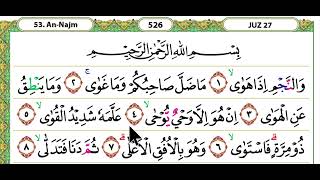 53. An-Najm 526 JUZ 27
بِسْمِ اللهِ الرَّحْمٰنِ الرَّحِيْمِ
وَالنَّجْمِ اِذَا هَوٰىۙ ١ مَا ضَلَّ صَاحِبُكُمْ وَمَا غَوٰىۚ ٢ وَمَا يَنْطِقُ
عَنِ الْهَوٰى ٣ اِنْ هُوَ اِلَّا وَحْيٌ يُّوْحٰىۙ ٤ عَلَّمَهٗ شَدِيْدُ الْقُوٰىۙ ٥
ذُوْ مِرَّةٍۗ فَاسْتَوٰىۙ ٦ وَهُوَ بِالْاُفُقِ الْاَعْلٰىۗ ٧ ثُمَّ دَنَا فَتَدَلّٰىۙ ٨